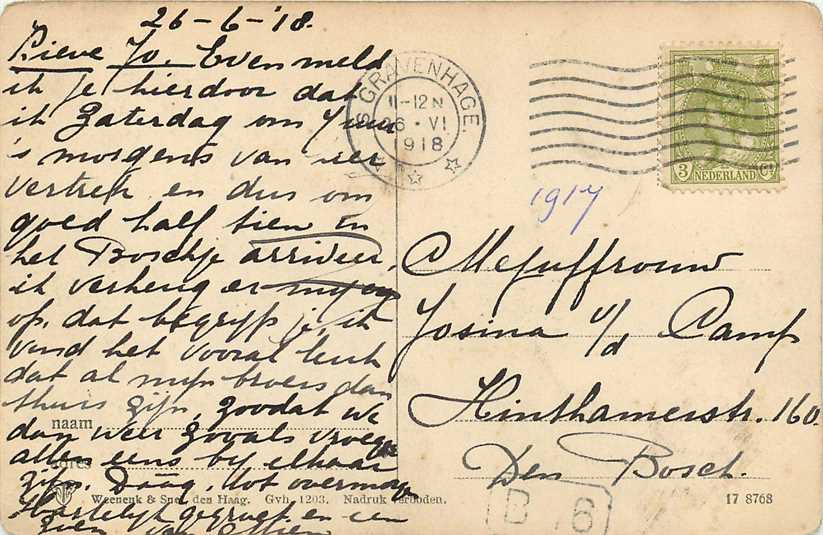 26-6-'18.
Lieve Jo, Even meld
ik je hierdoor dat
ik Zaterdag om 7 uur
's morgens van hier
vertrek en dus om
goed half tien in
het Boschje arriveer,
ik verheug er mij
op, dat begrijp je, ik
vind het vooral leuk
dat al mijn broers dan
thuis zijn, zoodat we
dan weer zooals vroeger
allen eens bij elkaar
zijn. Daag, tot overmorgen
Hartelijk gegroet en een
zoen van Mien
naam
adres
Weenenk & Snel, den Haag. Gvh. 1203. Nadruk verboden.
'S GRAVENHAGE
11-12 N
26 · VI
1918
3 NEDERLAND Ct
1917
Mejuffrouw
Josina v/d Camp
Hinthamerstr. 160.
Den Bosch.
B 6
17 8768